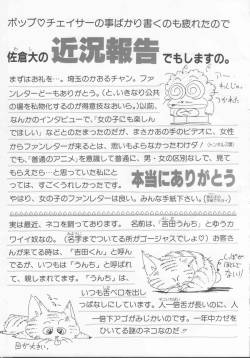 ポップ♡チェイサーの事ばかり書くのも疲れたので
佐倉大の近況報告でもしますの。
まずはお礼を…。埼玉のかおるチャン。ファ
ンレターどーもありがとう。(と、いきなり公共
の場を私物化するのが得意技なおいら。)以前、
なんかのインタビューで、「女の子にも楽しん
でほしい」などとのたまったのだが、まさかあの手のビデオに、女性
からファンレターが来るとは、思いもよらなかったわけサ!
でも、「普通のアニメ」を意識して普通に、男・女の区別なしで、見て
もらえたら…と思っていた私にと
っては、すごくうれしかったです。
やはり、女の子のファンレターは良い。みんな手紙下さい。
本当にありがとう
実は最近、ネコを飼ってます。名前は、「吉田うんち」とゆうカ
ワイイ奴なの。(名字までついてる所がゴージャスでしょ♡)お客さ
んが来てる時は、「吉田くん」と呼ん
でるが、いつもは「うんち」と呼ばれ
て、親しまれてます。「うんち」は、
いつも舌ベロを出し
っぱなしにしています。人一倍舌が長いのに、人
一倍下アゴがみじかいのです。一年中カゼを
ひいてる謎のネコなのだ!!
目が大きい。